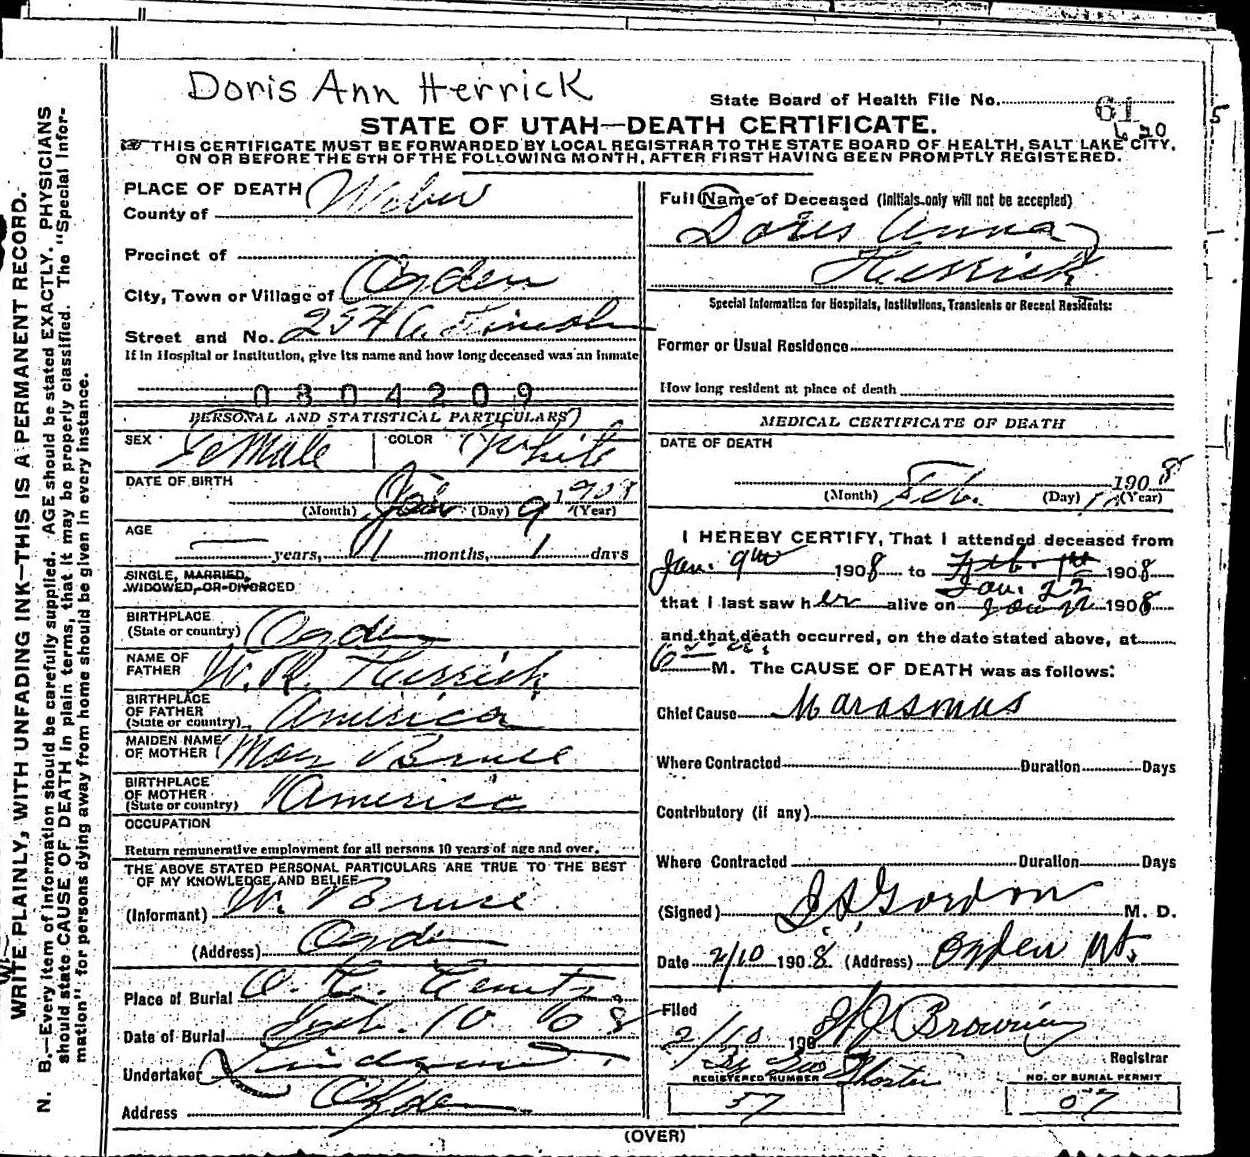 Doris Ann Herrick
State Board of Health File No. 61
620
STATE OF UTAH—DEATH CERTIFICATE.
THIS CERTIFICATE MUST BE FORWARDED BY LOCAL REGISTRAR TO THE STATE BOARD OF HEALTH, SALT LAKE CITY,
ON OR BEFORE THE 5TH OF THE FOLLOWING MONTH, AFTER FIRST HAVING BEEN PROMPTLY REGISTERED.
PLACE OF DEATH
County of Weber
Precinct of
City, Town or Village of Ogden
Street and No. Lincoln
If in Hospital or Institution, give its name and how long deceased was an inmate
0804209
PERSONAL AND STATISTICAL PARTICULARS
SEX Female COLOR White
DATE OF BIRTH
Jan 9 1908
(Month) (Day) (Year)
AGE
— years, 1 months, 1 days
SINGLE, MARRIED,
WIDOWED, OR DIVORCED
BIRTHPLACE
(State or country) Ogden
NAME OF
FATHER W. R. Herrick
BIRTHPLACE
OF FATHER
(State or country) America
MAIDEN NAME
OF MOTHER May Bruce
BIRTHPLACE
OF MOTHER
(State or country) America
OCCUPATION
Return remunerative employment for all persons 10 years of age and over.
THE ABOVE STATED PERSONAL PARTICULARS ARE TRUE TO THE BEST
OF MY KNOWLEDGE AND BELIEF
(Informant) W. Bruce
(Address) Ogden
Place of Burial
Date of Burial Feb. 10 08
Undertaker Lindquist
Address Ogden
Full Name of Deceased (Initials only will not be accepted)
Doris Anna
Herrick
Special Information for Hospitals, Institutions, Transients or Recent Residents:
Former or Usual Residence
How long resident at place of death
MEDICAL CERTIFICATE OF DEATH
DATE OF DEATH
Feb. 1908
(Month) (Day) (Year)
I HEREBY CERTIFY, That I attended deceased from
Jan. 9th 1908 to Feb. 1st 1908
Jan. 22
that I last saw her alive on Jan 22 1908
and that death occurred, on the date stated above, at
6 M. The CAUSE OF DEATH was as follows:
Chief Cause Marasmus
Where Contracted Duration Days
Contributory (if any)
Where Contracted Duration Days
(Signed) Gordon M. D.
Date 2/10 1908. (Address) Ogden Ut.
Filed
2/10 190 Browning
Registrar
By Geo Shorten
REGISTERED NUMBER NO. OF BURIAL PERMIT
57 57
(OVER)
WRITE PLAINLY, WITH UNFADING INK—THIS IS A PERMANENT RECORD.
N. B.—Every item of information should be carefully supplied. AGE should be stated EXACTLY. PHYSICIANS
should state CAUSE OF DEATH in plain terms, that it may be properly classified. The "Special Infor-
mation" for persons dying away from home should be given in every instance.